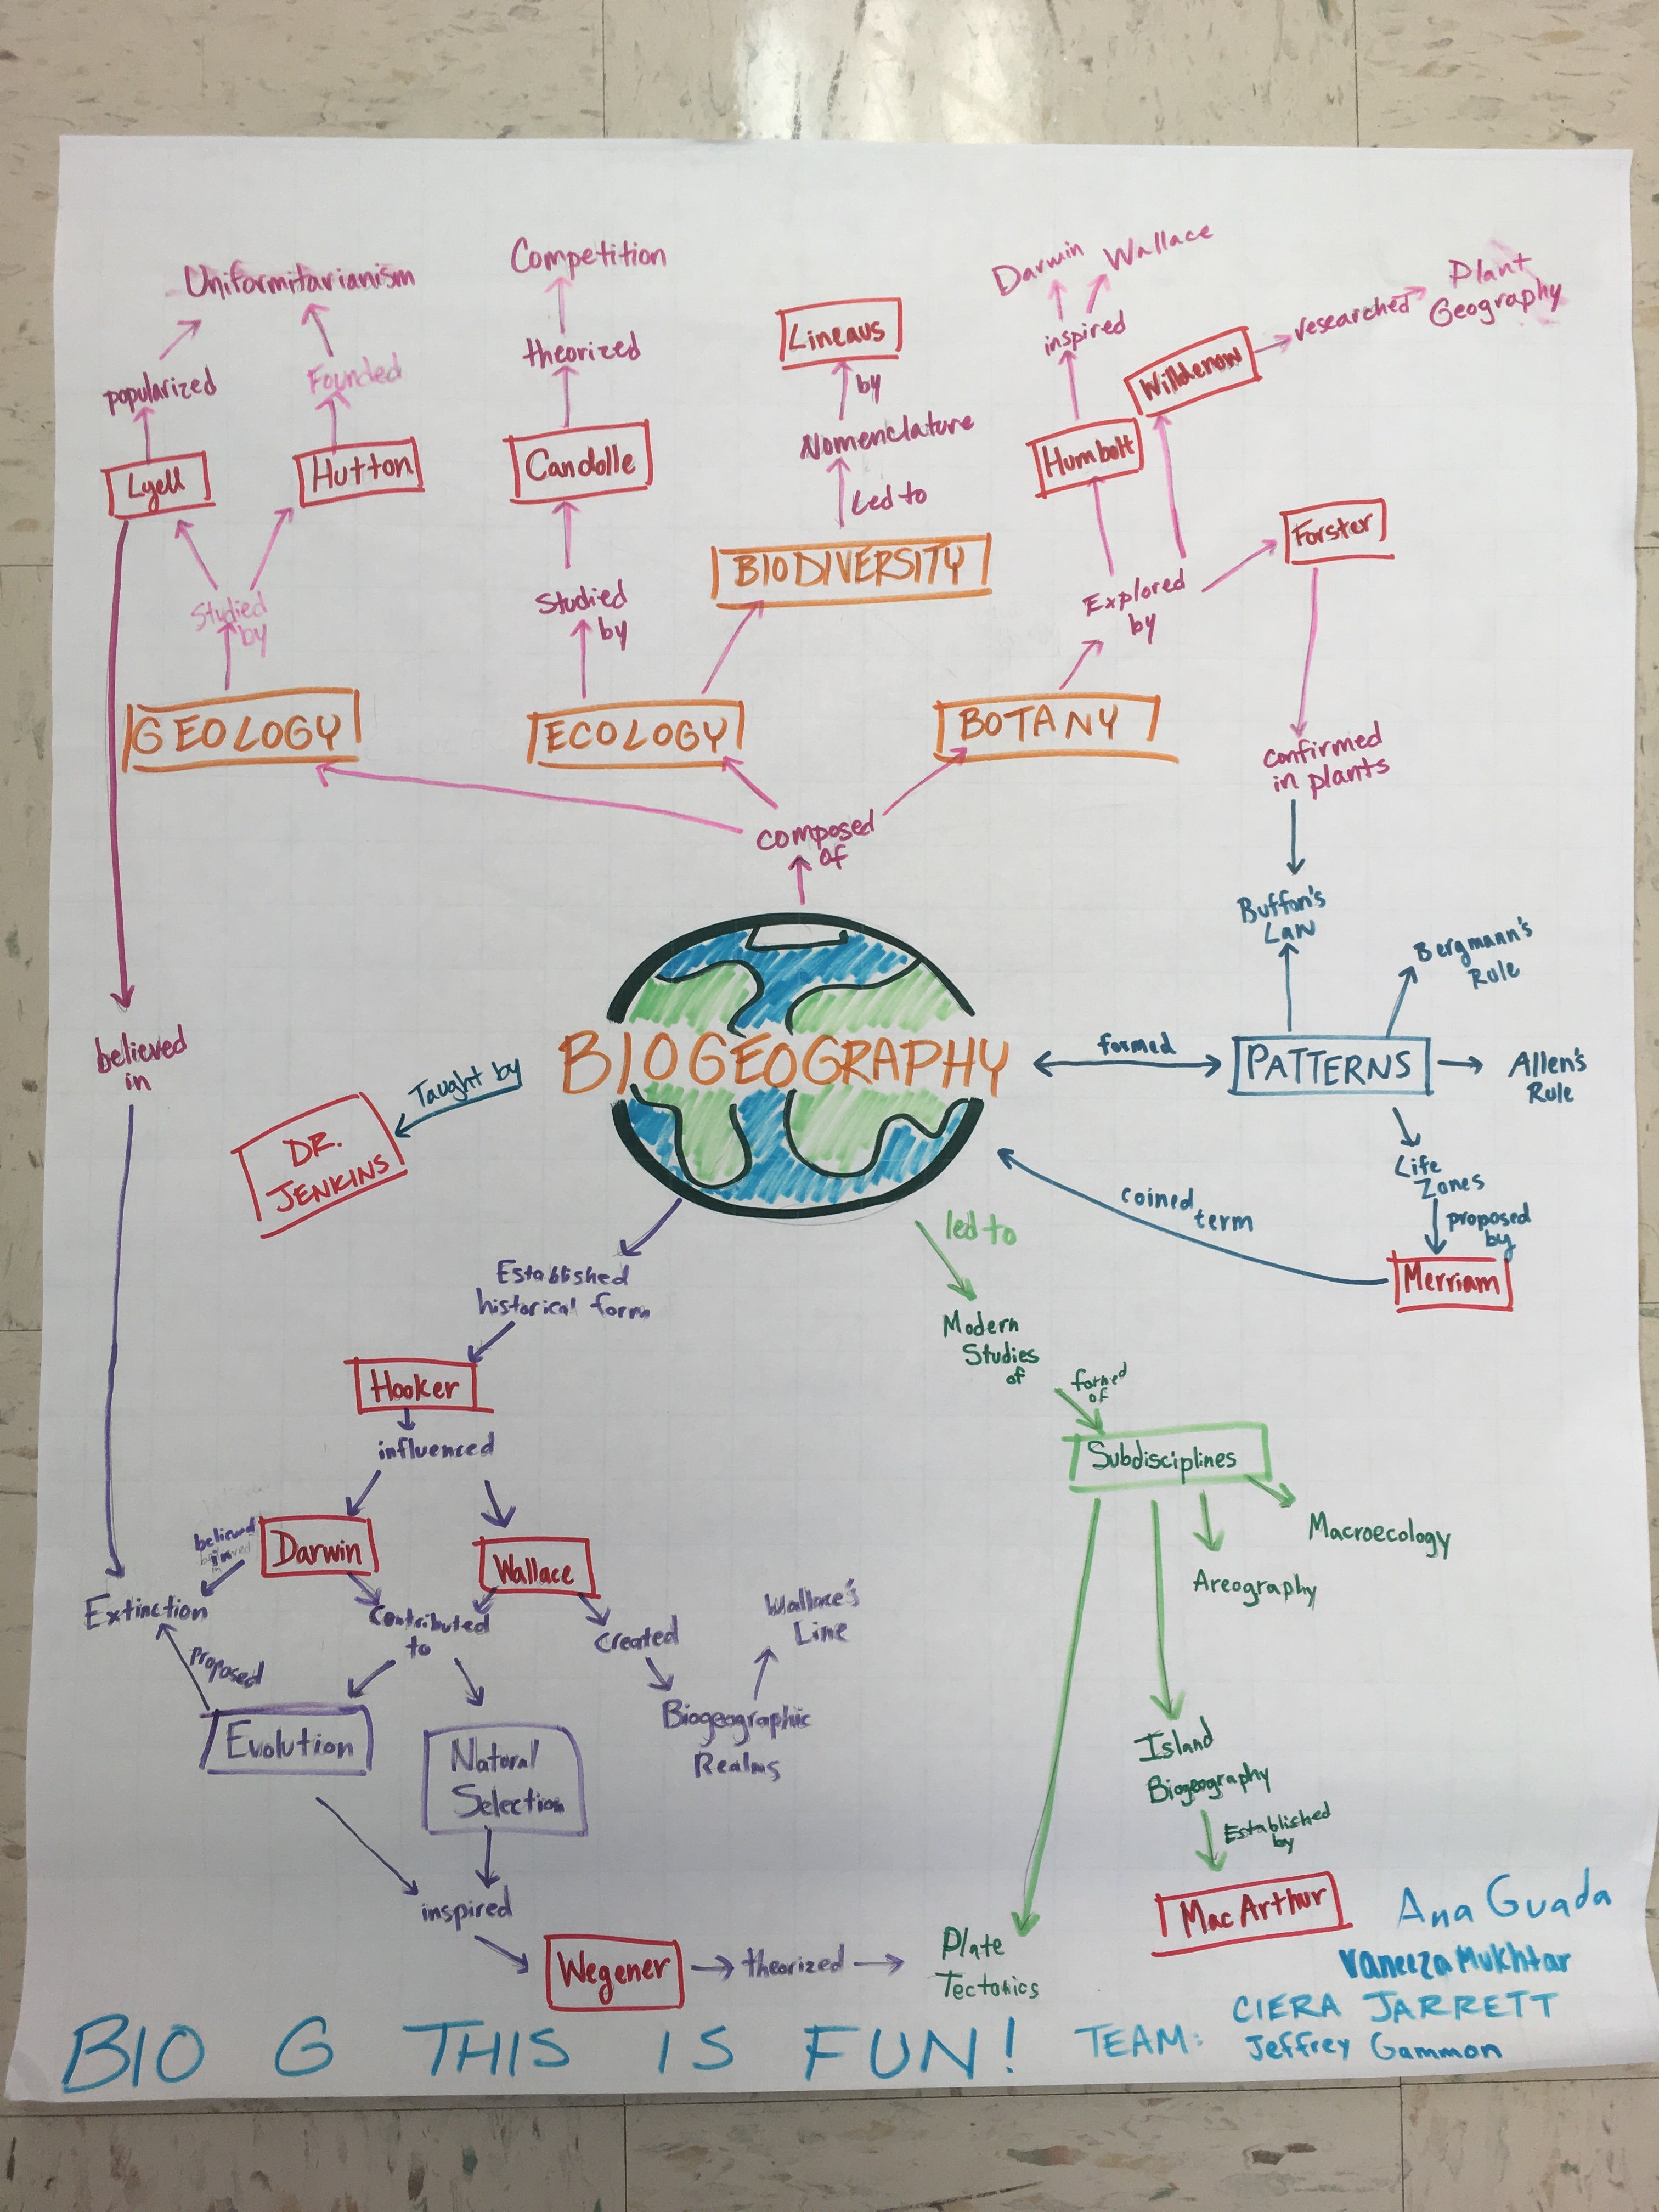 Uniformitarianism
popularized
Founded
Lyell
Hutton
Studied
by
GEOLOGY
Competition
theorized
Candolle
Studied
by
ECOLOGY
Lineaus
by
Nomenclature
Led to
BIODIVERSITY
Darwin
Wallace
inspired
Humbolt
Willdenow
researched
Plant
Geography
Forster
Explored
by
BOTANY
confirmed
in plants
composed
of
Buffon's
Law
Bergmann's
Rule
BIOGEOGRAPHY
formed
PATTERNS
Allen's
Rule
Life
Zones
proposed
by
Merriam
coined
term
believed
in
Taught by
DR.
JENKINS
Established
historical form
Hooker
influenced
believed
in
Darwin
Wallace
Extinction
Contributed
to
Created
Wallace's
Line
proposed
Evolution
Natural
Selection
Biogeographic
Realms
inspired
Wegener
theorized
led to
Modern
Studies
of
formed
of
Subdisciplines
Macroecology
Areography
Island
Biogeography
Established
by
MacArthur
Plate
Tectonics
BIO G THIS IS FUN!
TEAM:
Ana Guada
Vaneeza Mukhtar
CIERA JARRETT
Jeffrey Gammon